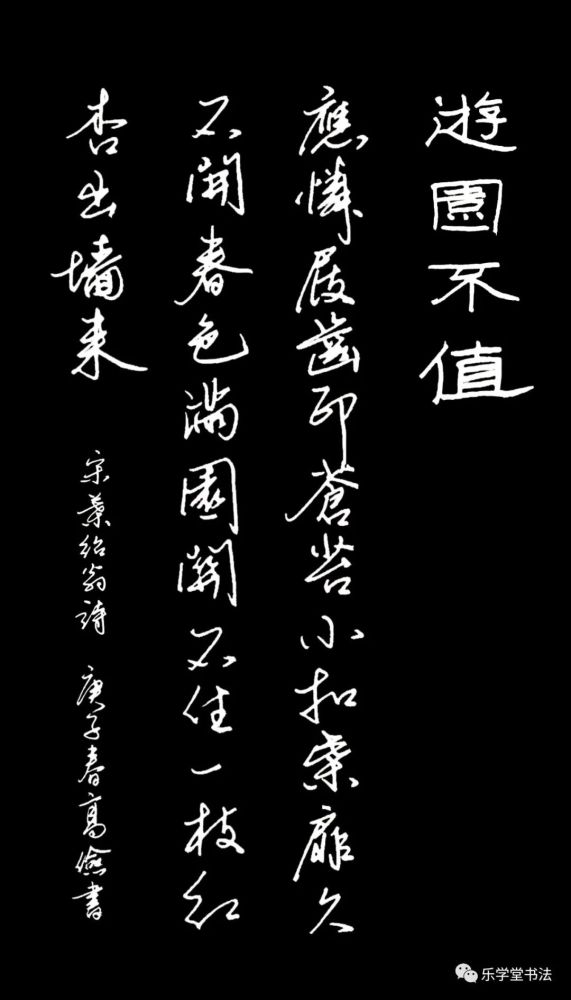 遊園不值
應憐屐齒印蒼苔小扣柴扉久
不開春色滿園關不住一枝紅
杏出墻来
宋葉紹翁詩 庚子春高儉書
乐学堂书法